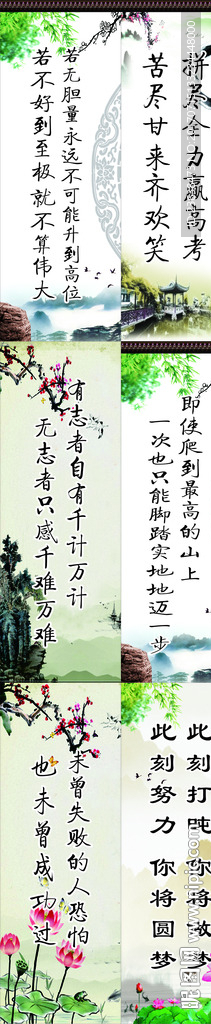 若无胆量永远不可能升到高位
若不好到至极就不算伟大
拼尽全力赢高考
苦尽甘来齐欢笑
有志者自有千计万计
无志者只感千难万难
即使爬到最高的山上
一次也只能脚踏实地地迈一步
未曾失败的人恐怕
也未曾成功过
此刻打盹 你将做梦
此刻努力 你将圆梦